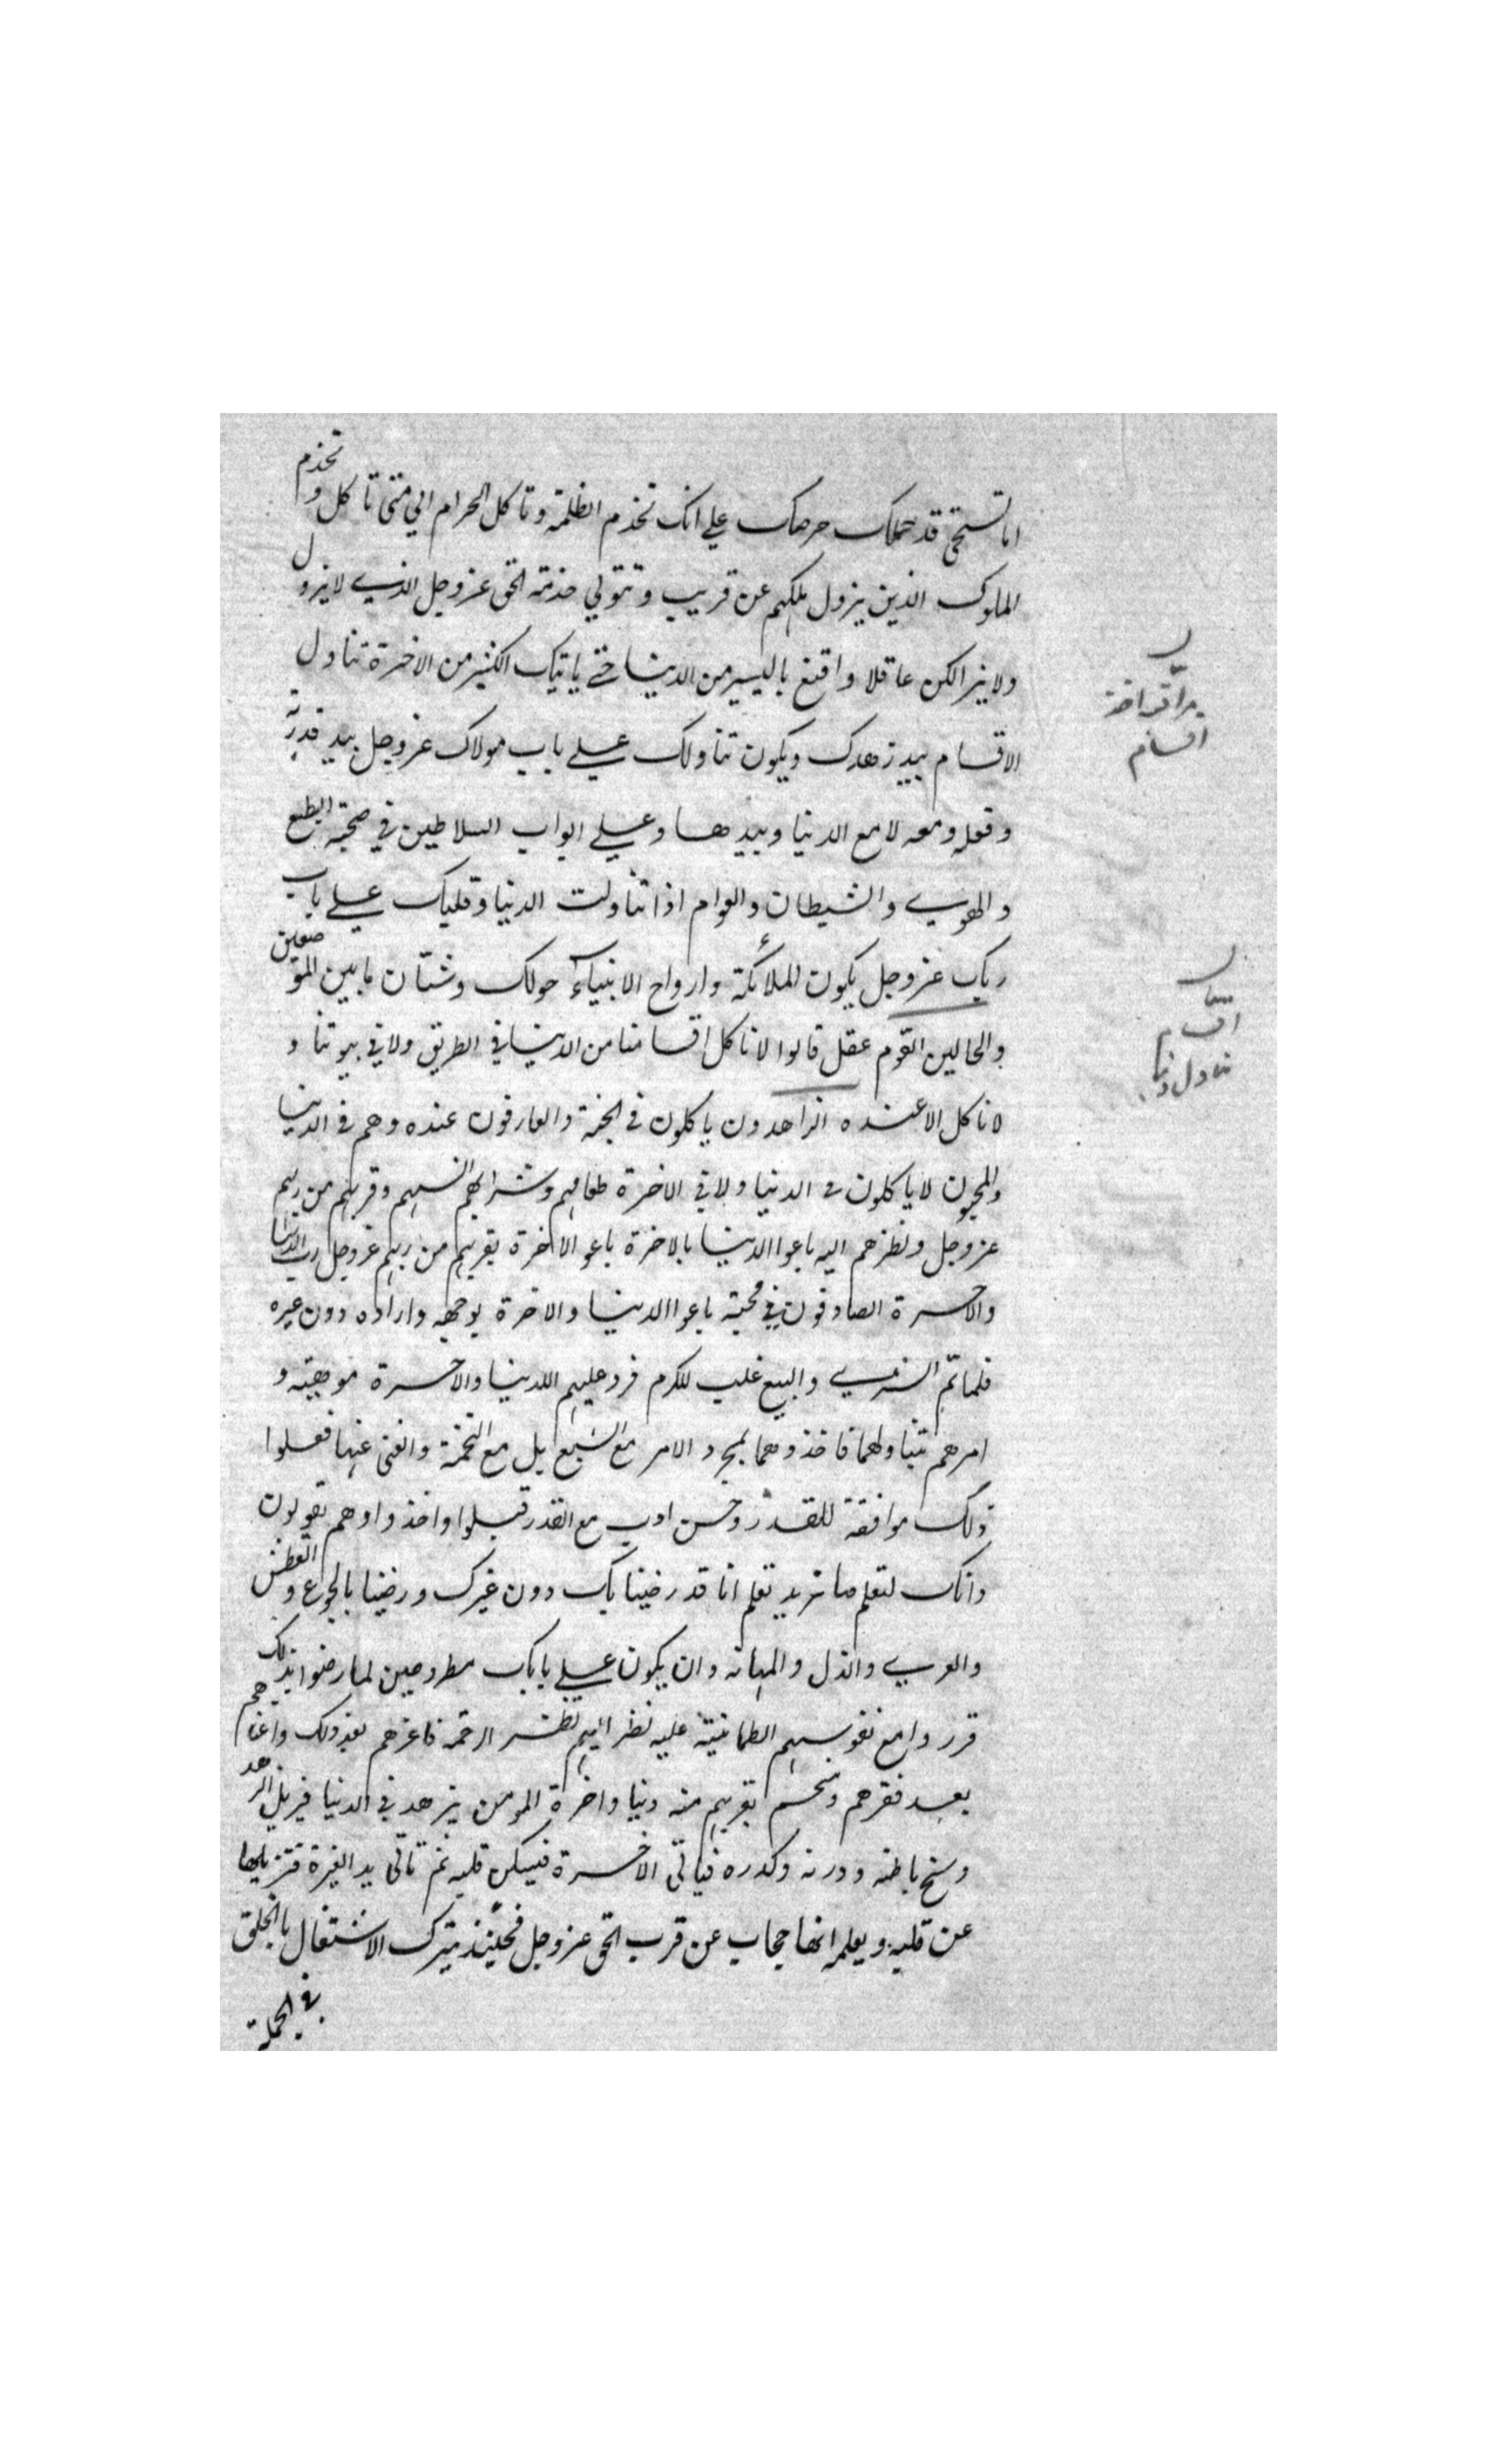 اما تستحى قد حملك حرصك علي انك تخدم الظلمة وتاكل الحرام الي متى تاكل و تخدم
الملوك الذين يزول ملكهم عن قريب و تتولي خدمة الحق عزوجل الذي لا يزول
ولا يزال كن عاقلا واقنع باليسير من الدنيا حتى ياتيك الكثير من الاخرة تناول
الاقسام بيد زهدك ويكون تناولك علي باب مولاك عزوجل بيد قدرته
وفعله ومعه لا مع الدنيا وبيدها وعلي ابواب السلاطين في صحبة الطبع
والهوي والشيطان والعوام اذا تناولت الدنيا وقلبك علي باب
ربك عزوجل يكون الملائكة وارواح الانبياء حولك وشتان ما بين الموضعين
والحالين القوم عقل قالوا لا ناكل اقسامنا من الدنيا في الطريق ولا في بيوتنا و
لا ناكل الا عنده الزاهدون ياكلون في الجنة والعارفون عنده وهم في الدنيا
والمحبون لا ياكلون في الدنيا ولا في الاخرة طعامهم وشرابهم انسهم وقربهم من ربهم
عزوجل ونظرهم اليه باعوا الدنيا بالاخرة باعوا الاخرة بقربهم من ربهم عزوجل رب الدنيا
والاخرة الصادقون في محبته باعوا الدنيا والاخرة بوجهه وارادوه دون غيره
فلما تم الشري والبيع غلب الكرم فرد عليهم الدنيا والاخرة موهبة و
امرهم بتناولهما فاخذوهما بمجرد الامر مع الشبع بل مع التخمة والغنى عنهما فعلوا
ذلك موافقة للقدر وحسن ادب مع القدر قبلوا واخذوا وهم يقولون
وانك لتعلم ما نريد تعلم انا قد رضينا بك دون غيرك ورضينا بالجوع والعطش
والعري والذل والمهانة وان يكون علي بابك مطروحين لما رضوا بذلك
قرروا مع نفوسهم الطمانينة عليه نظر اليهم نظر الرحمة فاعزهم بعد ذلهم واغناهم
بعد فقرهم ومنحهم بقربهم منه دنيا واخرة المومن يزهد في الدنيا فيزيل الزهد
وسخ باطنه ودرنه وكدره فياتى الاخرة فيسكن قلبه ثم تاتى يد الغيرة فتزيلها
عن قلبه ويعلمه انها حجاب عن قرب الحق عزوجل فحينئذ يترك الاشتغال بالخلق
في الجملة
اقسام
اقسام
تناول دنيا